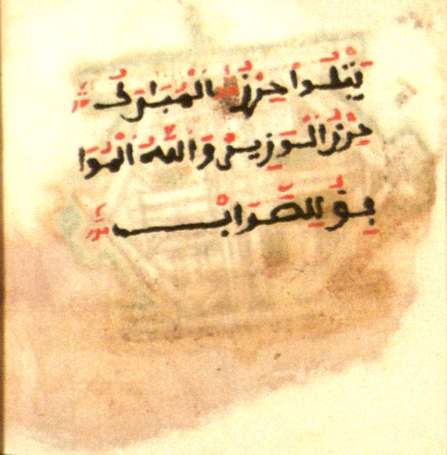 يتلوا حرز المبارك
حرز الوزير والله الموا
فق للصواب